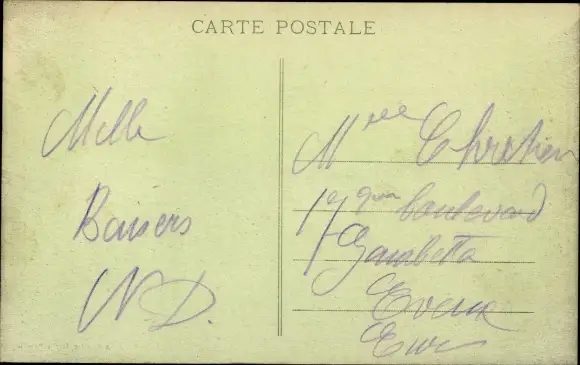 CARTE POSTALE
Mille
Baisers
N D.
Mlle Chretien
17 boulevard
Gambetta
Evreux
Eure